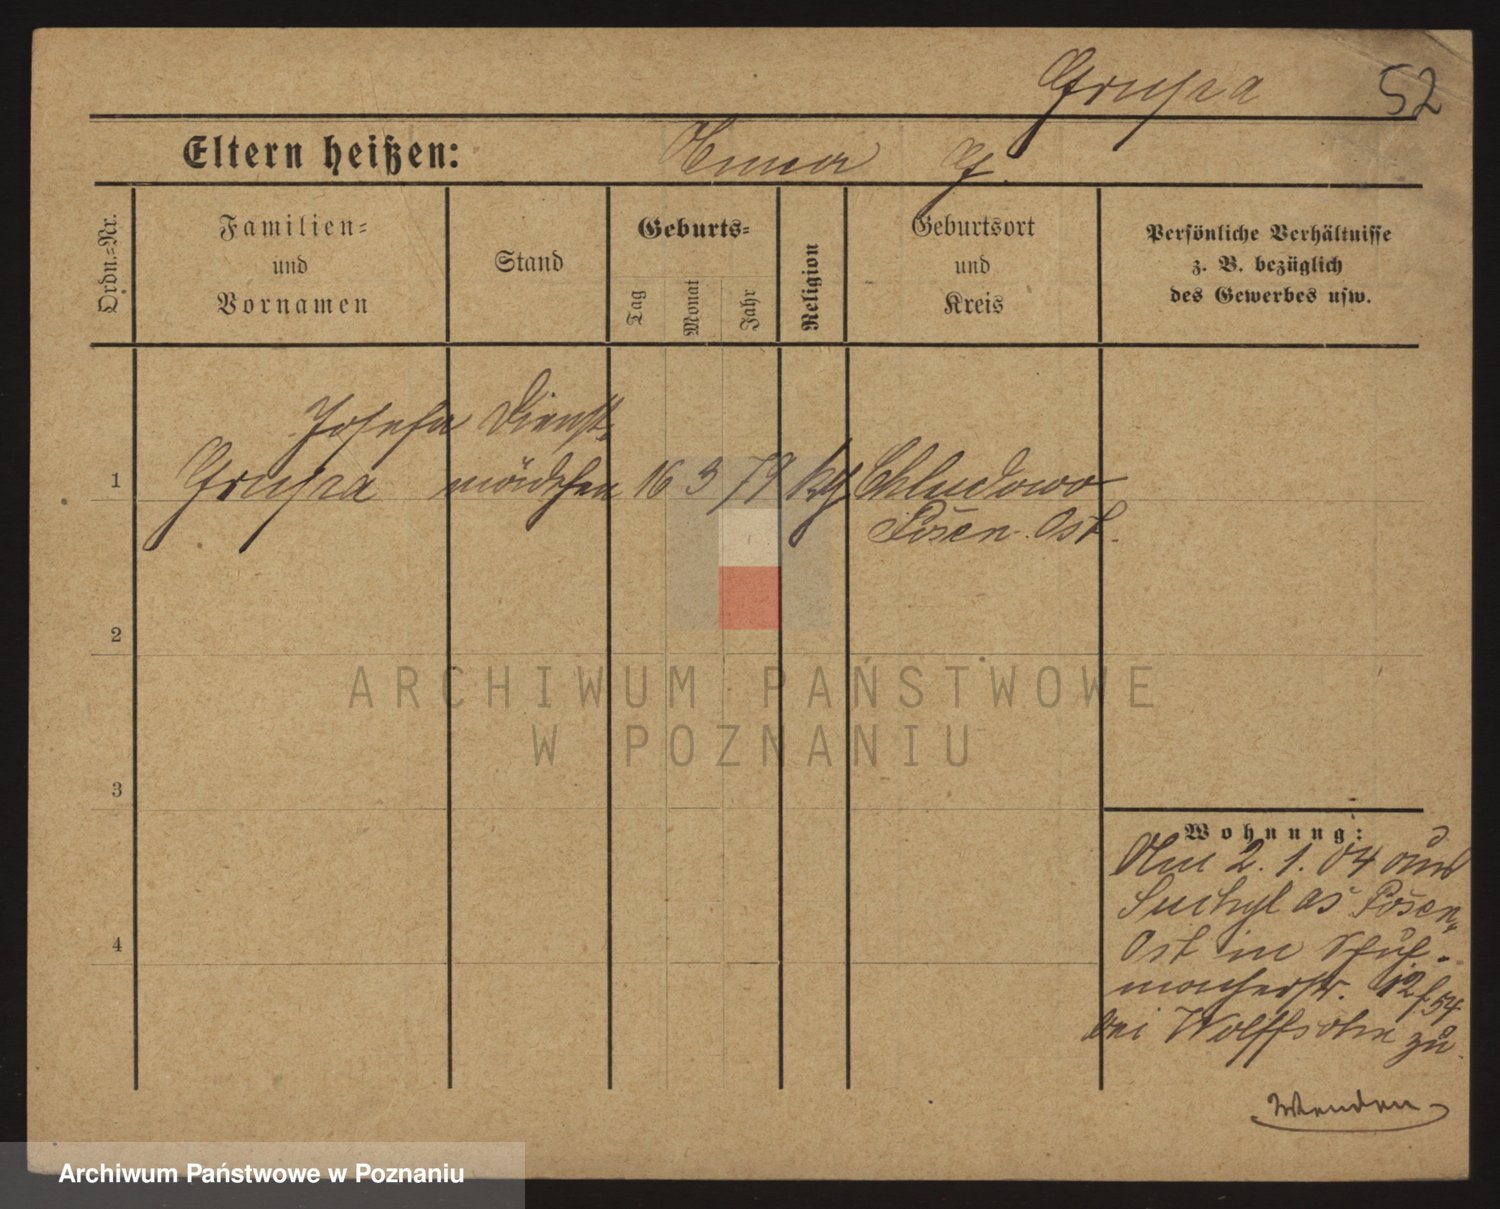 Grupa 52
Eltern heißen: G.
Ordn.-Nr.
Familien-
und
Vornamen
Stand
Geburts-
Tag
Monat
Jahr
Religion
Geburtsort
und
Kreis
Persönliche Verhältnisse
z. B. bezüglich
des Gewerbes usw.
Josefa Dienst-
1 Grupa mädchen 16 3 79 kg Chludowo
Posen. Ost.
2
3
4
Wohnung:
Am 2. 1. 04 aus
Suchyl as Posen
Ost in Schuh-
macherstr. 12
bei Wolffsohn zu.
ARCHIWUM PAŃSTWOWE
W POZNANIU
Archiwum Państwowe w Poznaniu